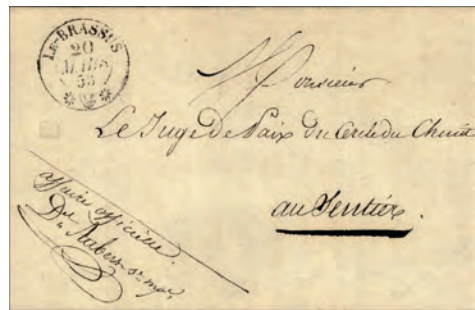 Le-BRASSUS
20
MARS
55
Monsieur
Le Juge de Paix du Cercle du Chenit
au Sentier.
affaire officielle.